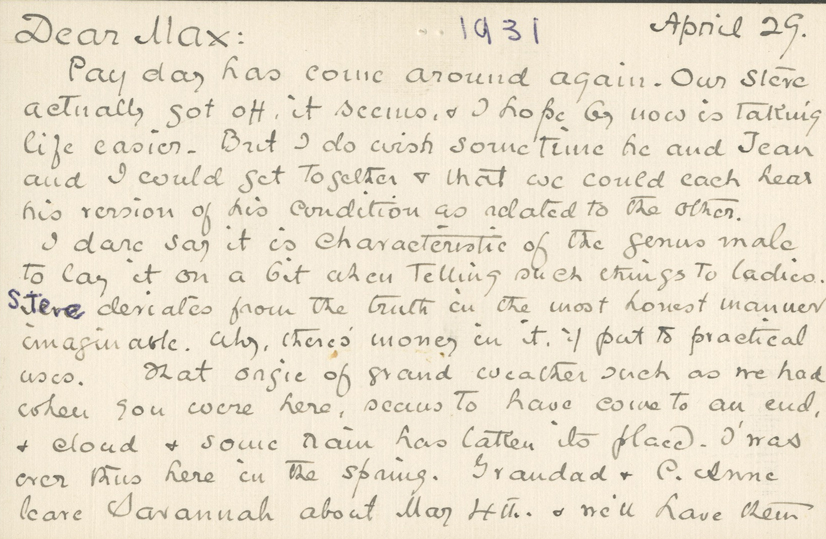 Dear Max:
1931
April 29.
Pay day has come around again. Our Steve
actually got off, it seems, & I hope by now is taking
life easier. But I do wish sometime he and Jean
and I could get together & that we could each hear
his version of his condition as related to the other.
I dare say it is characteristic of the genus male
to lay it on a bit when telling such things to ladies.
Steve deviates from the truth in the most honest manner
imaginable. Why, there's money in it, if put to practical
uses. That orgie of grand weather such as we had
when you were here, seems to have come to an end,
& cloud & some rain has taken its place. T'was
ever thus here in the spring. Grandad & C. Anne
leave Savannah about May 4th. & we'll have them